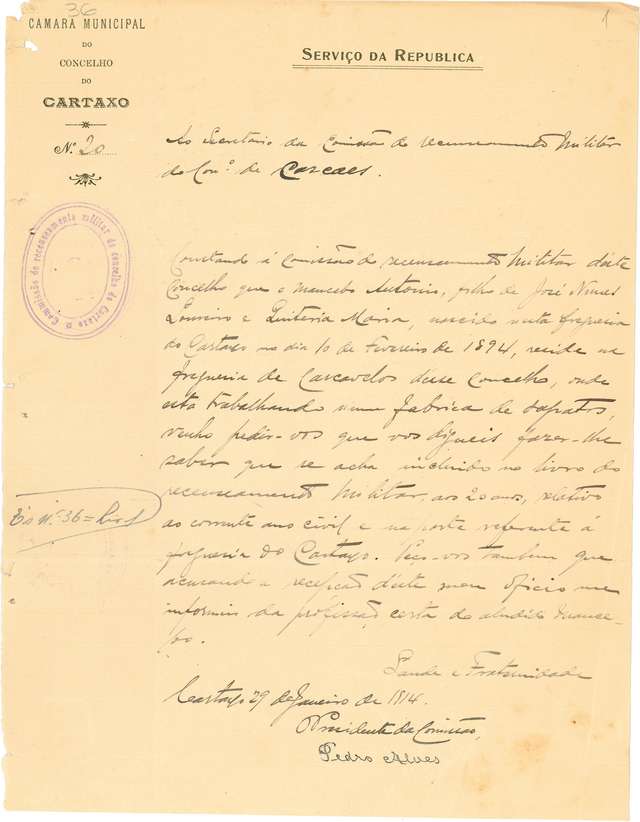 36
CAMARA MUNICIPAL
DO
CONCELHO
DO
CARTAXO
N.º 20
SERVIÇO DA REPUBLICA
1
Ao Secretario da Comissão de recenseamento Militar
do Con.º de Cascaes.
Commissão de recenseamento militar do concelho do Cartaxo
Constando á Comissão de recenseamento Militar dêste
Concelho que o mancebo Antonio, filho de José Nunes
Loureiro e Quiteria Maria, nascido nesta freguesia
do Cartaxo no dia 10 de Fevereiro de 1894, reside na
freguesia de Carcavelos desse Concelho, onde
está trabalhando numa fabrica de sapatos,
venho pedir-vos que vos digneis fazer-lhe
saber que se acha incluido no livro do
recenseamento Militar, aos 20 anos, relativo
ao corrente ano civil e na parte referente á
freguesia do Cartaxo. Peço-vos tambem que
acusando a recepção dêste meu oficio me
informeis da profissão certa do aludido mance-
bo.
nº 36 =
Saude e Fraternidade
Cartaxo 29 de Janeiro de 1914.
O Presidente da Comissão,
Pedro Alves